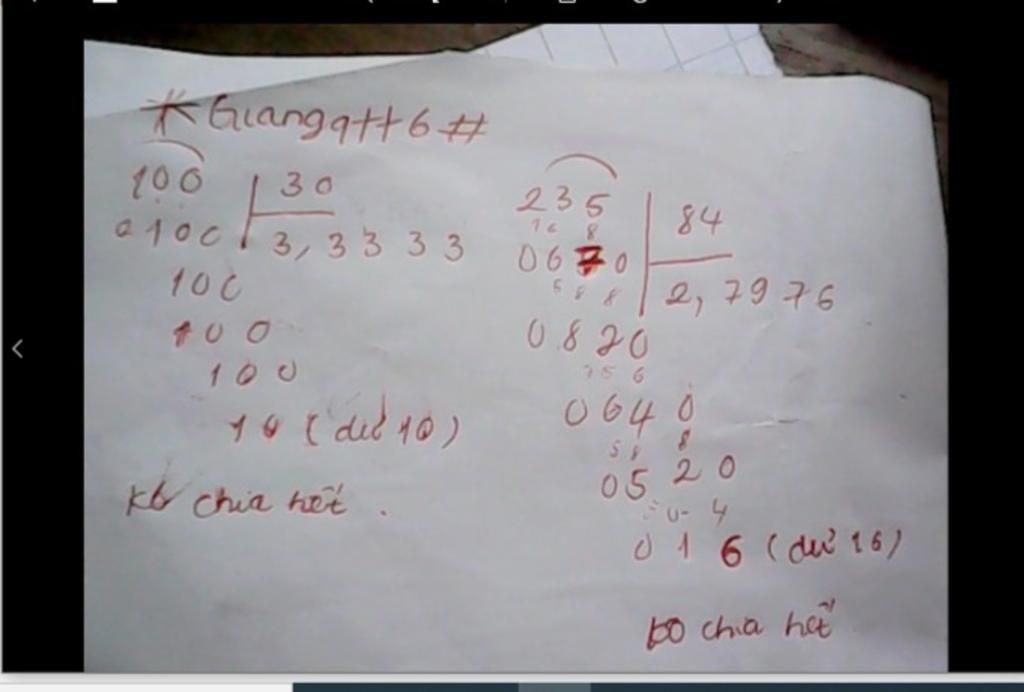 *Giang 9H6#
100 | 30
0100 | 3,3333
100
100
100
10 (dư 10)
ko chia hết.
235 | 84
168
0670 | 2,7976
588
0820
756
0640
588
0520
504
016 (dư 16)
ko chia hết